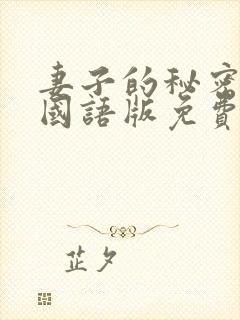 妻子的秘密
國語版免費
芷夕